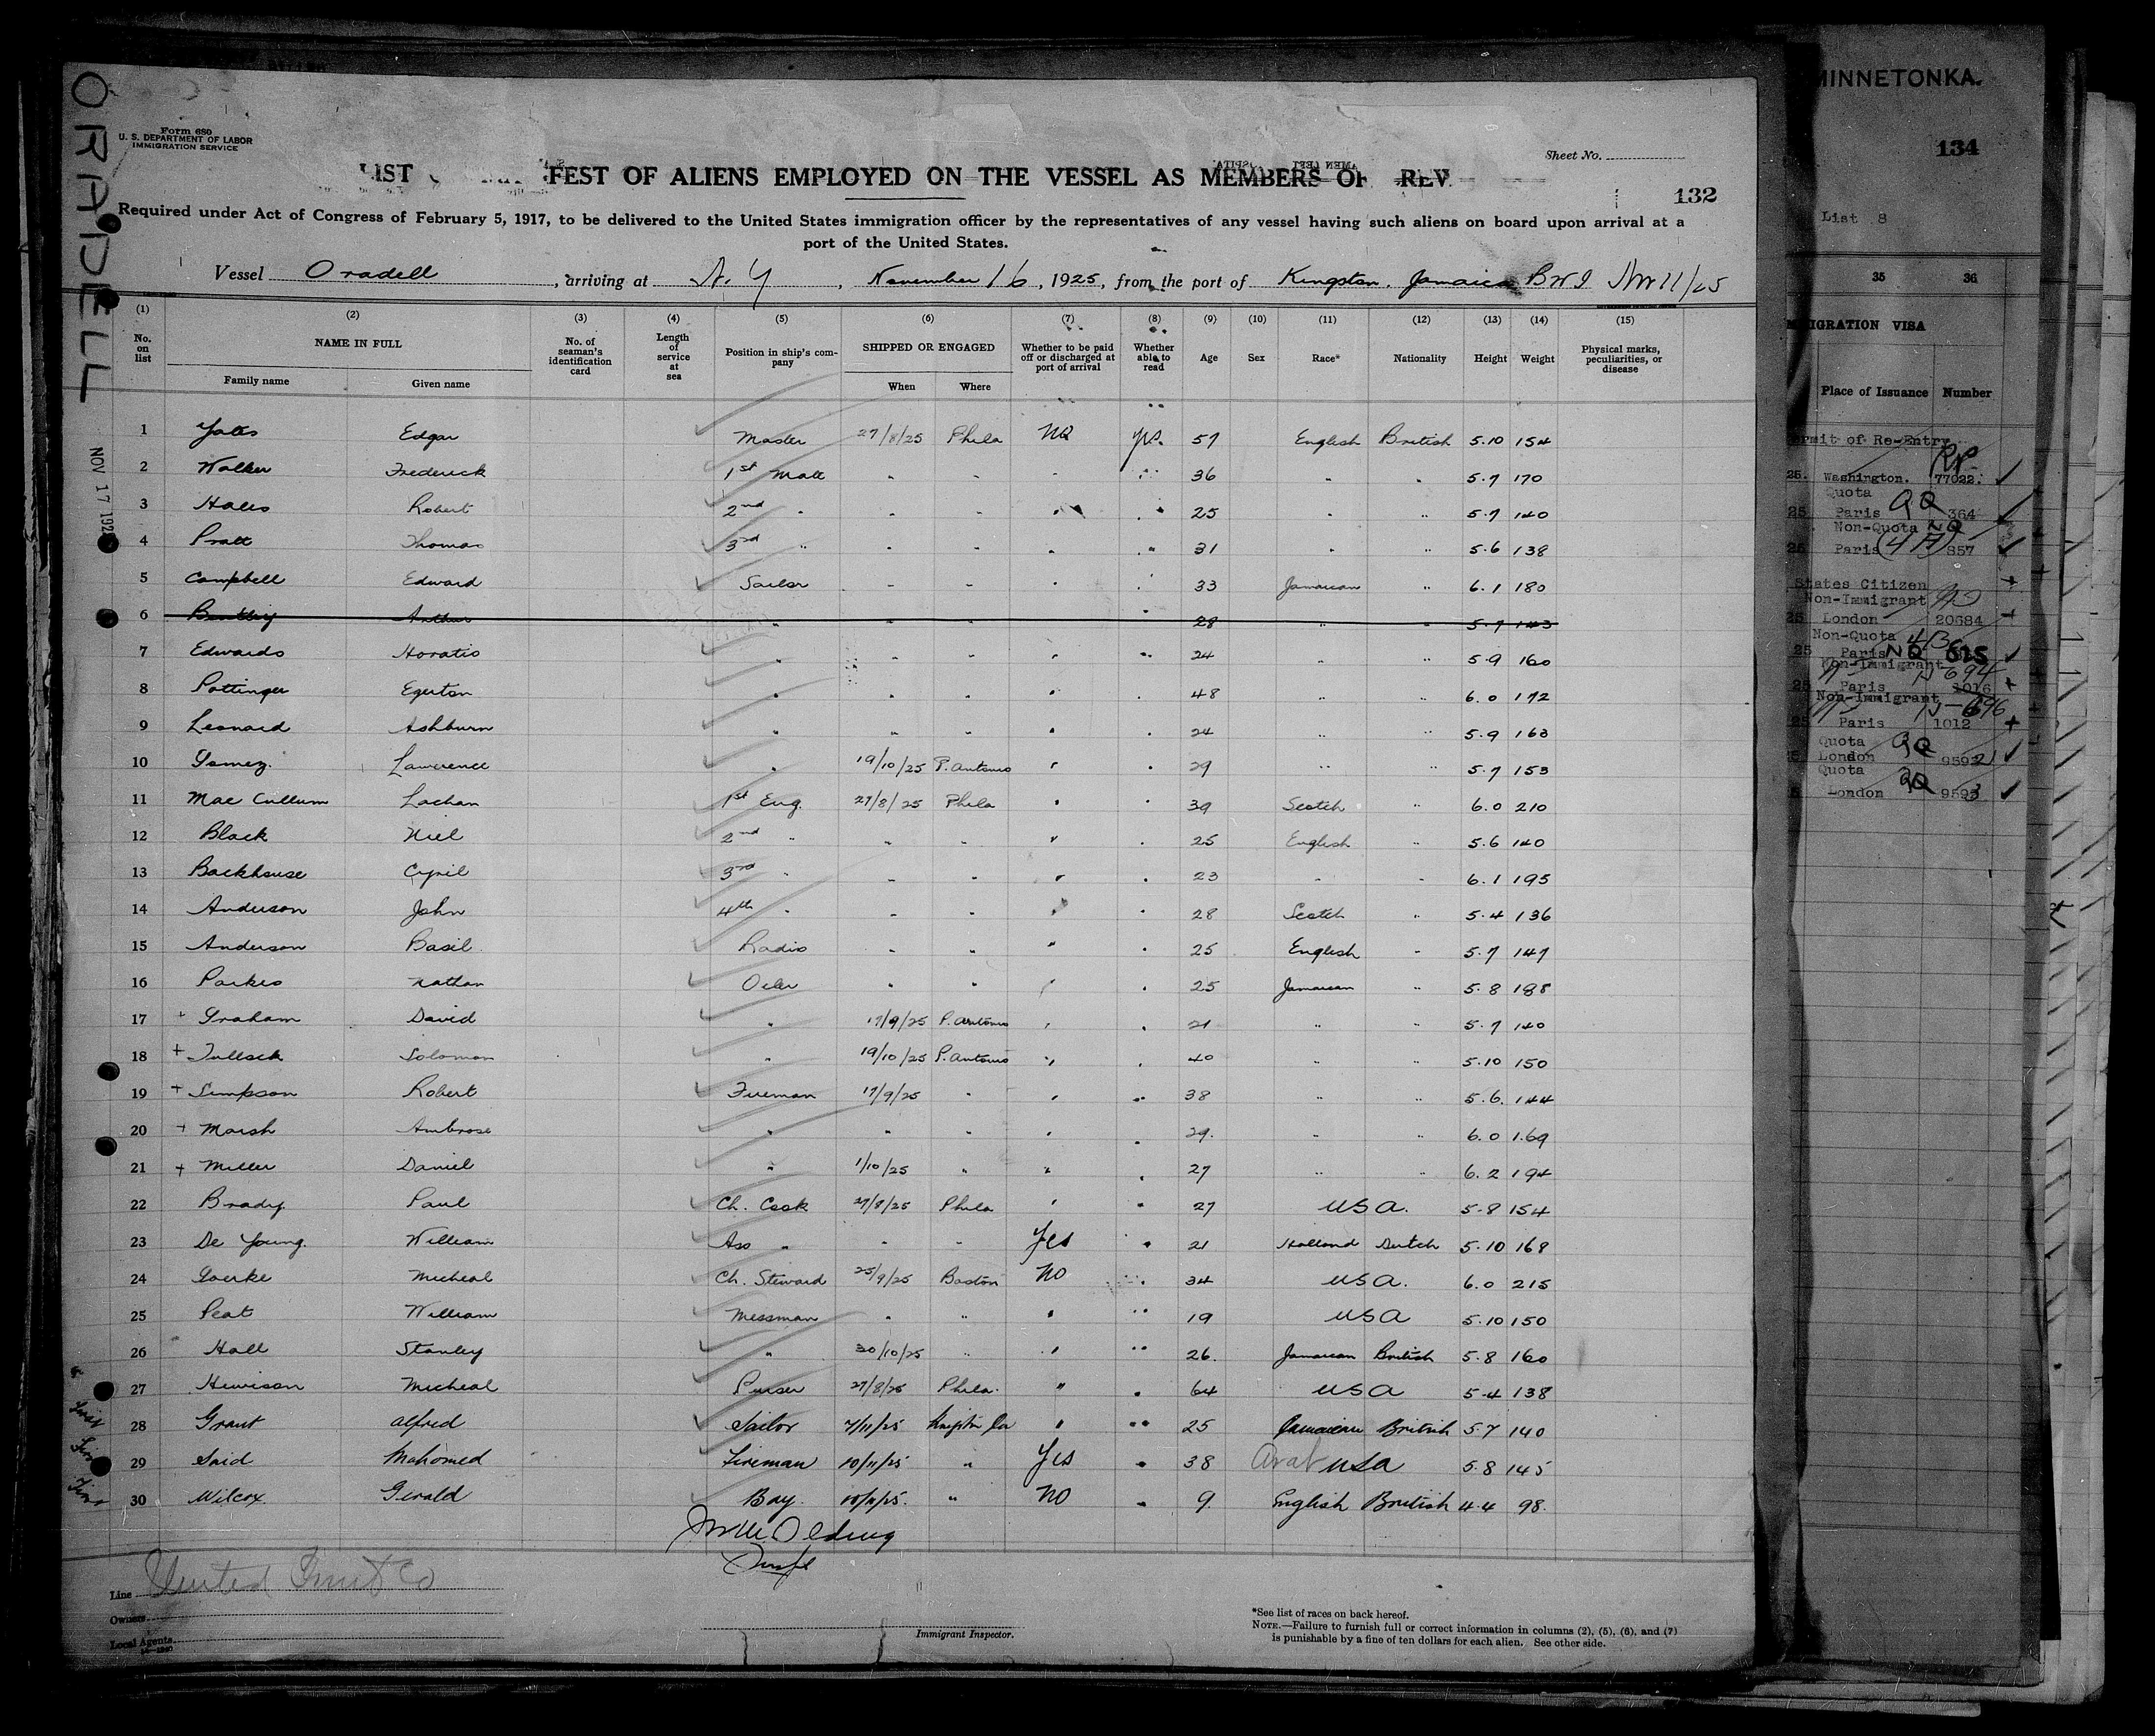 ORADELL
Form 680
U. S. DEPARTMENT OF LABOR
IMMIGRATION SERVICE
Sheet No.
LIST FEST OF ALIENS EMPLOYED ON THE VESSEL AS MEMBERS OF REW
132
Required under Act of Congress of February 5, 1917, to be delivered to the United States immigration officer by the representatives of any vessel having such aliens on board upon arrival at a
port of the United States.
Vessel Oradell, arriving at N. Y, November 16, 1925, from the port of Kingston. Jamaica B W I Nov 11/25
(1) (2) (3) (4) (5) (6) (7) (8) (9) (10) (11) (12) (13) (14) (15)
No. on list NAME IN FULL Family name Given name No. of seaman's identification card Length of service at sea Position in ship's company SHIPPED OR ENGAGED When Where Whether to be paid off or discharged at port of arrival Whether able to read Age Sex Race* Nationality Height Weight Physical marks, peculiarities, or disease
NOV 17 192
1 Yates Edgar Master 27/8/25 Phila No Yes. 57 English British 5.10 154
2 Walker Frederick 1st Mate " " " " 36 " " 5.7 170
3 Hales Robert 2nd " " " " " 25 " " 5.7 140
4 Pratt Thomas 3rd " " " " " 31 " " 5.6 138
5 Campbell Edward Sailor " " " " 33 Jamaican " 6.1 180
6 Bentley Arthur " " " " " 28 " " 5.7 143
7 Edwards Horatio " " " " " 24 " " 5.9 160
8 Pottinger Egerton " " " " " 48 " " 6.0 172
9 Leonard Ashburn " " " " " 24 " " 5.9 163
10 Gomez. Lawrence " 19/10/25 P. Antonio " " 29 " " 5.7 153
11 Mac Cullum Lachan 1st Eng. 27/8/25 Phila " " 39 Scotch " 6.0 210
12 Black Niel 2nd " " " " " 25 English " 5.6 140
13 Backhouse Cyril 3rd " " " " " 23 " " 6.1 195
14 Anderson John 4th " " " " " 28 Scotch " 5.4 136
15 Anderson Basil Radio " " " " 25 English " 5.7 147
16 Parkes Nathan Oiler " " " " 25 Jamaican " 5.8 188
17 + Graham David " 17/9/25 P. Antonio " " 21 " " 5.7 140
18 + Tulloch Solomon " 19/10/25 P. Antonio " " 40 " " 5.10 150
19 + Simpson Robert Fireman 17/9/25 " " " 38 " " 5.6. 144
20 + Marsh Ambrose " " " " " 29. " " 6.0 1.69
21 + Miller Daniel " 1/10/25 " " " 27 " " 6.2 194
22 Brady Paul Ch. Cook 27/8/25 Phila " " 27 U S A. 5.8 154
23 De Young. William Ass " " " Yes " 21 Holland Dutch 5.10 168
24 Goerke Micheal Ch. Steward 25/9/25 Boston No " 34 U S A. 6.0 215
25 Peat William Messman " " " " 19 U S A 5.10 150
26 Hall Stanley " 30/10/25 " " " 26. Jamaican British 5.8 160
27 Hewison Micheal Purser 27/8/25 Phila. " " 64 U S A 5.4 138
28 Grant Alfred Sailor 7/11/25 Kingston Ja " " 25 Jamaican British 5.7 140
29 Said Mahomed Fireman 10/11/25 " Yes " 38 Arab U S A 5.8 145
30 Wilcox Gerald Boy. 10/11/25. " No " 9 English British 4.4 98.
Line United Fruit Co
Owners
Local Agents
Immigrant Inspector.
*See list of races on back hereof.
NOTE.—Failure to furnish full or correct information in columns (2), (5), (6), and (7)
is punishable by a fine of ten dollars for each alien. See other side.
MINNETONKA.
134
List 8
35 36
MIGRATION VISA
Place of Issuance Number
ermit of Re-Entry
25. Washington. 77022.
Quota
25 Paris QQ 364
Non-Quota NQ
25 Paris (4 A) 857
States Citizen
Non-Immigrant
25 London 20684
Non-Quota
25 Paris NQ
Non-Immigrant
25 Paris 1016
Non-Immigrant
25 Paris 1012
Quota QQ
25 London 9592
Quota QQ
London 9593